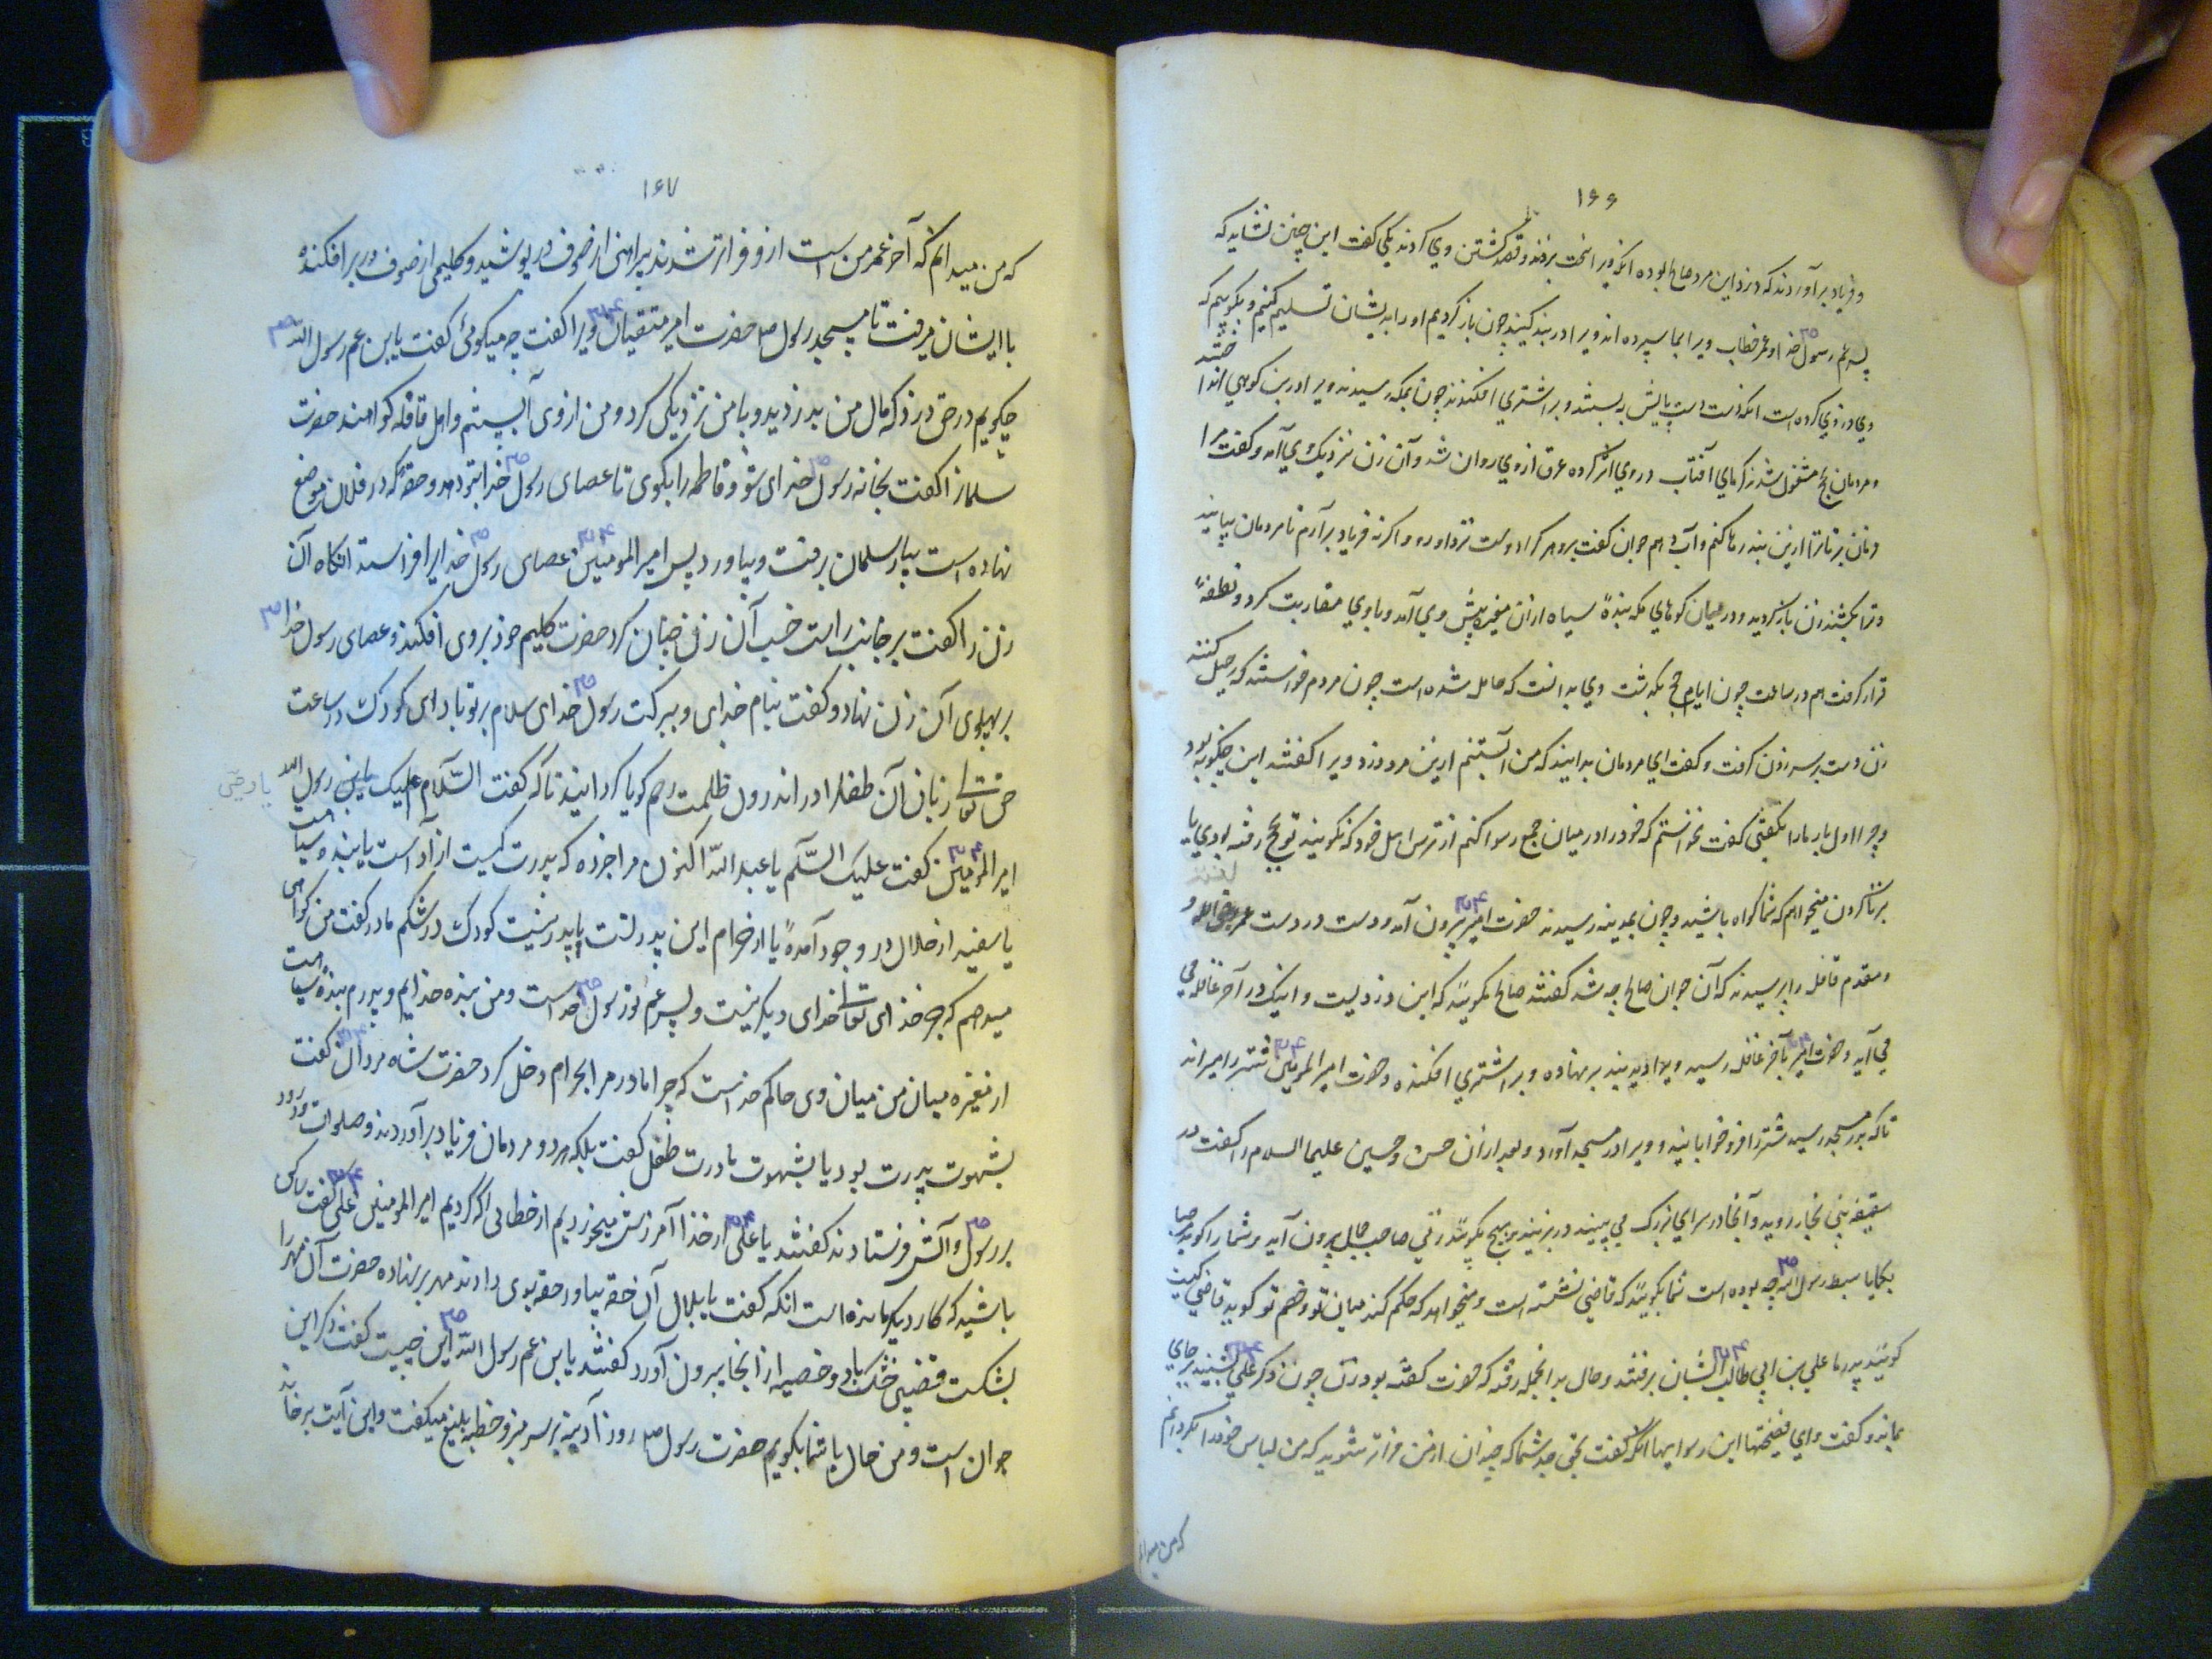 ۱۶۶
و فریاد برآوردند که دزد این مرد صالح بوده انکه ویرا سخت بزدند و قصد کشتن وی کردند یکی کفت این چنین نشاید که
پسر عم رسول خدا و عمر خطاب ویرا بما سپرده اند ویرا در بند کنید چون باز کردیم او را بدیشان تسلیم کنیم و بکوییم که
وی دزدی کرده است انکه دست و پایش به بستند و بر اشتری افکندند چون بمکه رسیدند ویرا در بن کوهی انداختند
و مردمان بحج مشغول شدند کرمای آفتاب در وی اثر کرده عرق از وی روان شد و آن زن نزدیک وی آمد و کفت مرا
فرمان بر تا ترا ازین بند رها کنم و آب دهم جوان کفت برو هر کرا دوست تر داورد و اکر نه فریاد برآرم تا مردمان بیایند
و ترا بکشند زن باز کردید و در میان کوهای مکه بندهٔ سیاه ازان مغیره پیش وی آمد و با وی مقاربت کرد و نطفهٔ
قرار کرفت هم در ساعت چون ایام حج بگذشت وی بدانست که حامل شده است چون مردم خواستند که رحیل کنند
زن دست بر سر زدن کرفت و کفت ای مردمان بدانید که من آبستنم ازین مرد دزد ویرا کفتند این چکونه بود
و چرا اول بار ما را نکفتی کفت نخواستم که خود را در میان جمع رسوا کنم از ترس اهل خود که نکویند تو بحج رفته بودی یا
بزنا کردن میخواهم که شما کواه باشید و چون بمدینه رسیدند حضرت امیر بیرون آمد و دست در دست عمر رضی الله و
و مقدم قافله را پرسیدند که آن جوان صالح چه شد کفتند صالح مکویید که این دزدیست و اینک در آخر قافله می
می آید و حضرت امیر بآخر قافله رسید ویرا دید بند بر نهاده و بر اشتری افکنده و حضرت امیر المومنین شتر را میراند
تا که بدر مسجد رسید شتر را فرو خوابانید و ویرا در مسجد آورد و بعد ازان حسن و حسین علیهما السلام را کفت در
سقیفه بنی نجار روید و آنجا در سرای بزرک می بینید در بزنید و هیچ مکویید زنی صاحب جمال بیرون آید و شما را کوید مرحبا
بکما یا سبط رسول الله چه بوده است شما بکویید که قاضی نشسته است و میخواهد که حکم کند میان تو و خصم تو کوید قاضی کیست
کویید پدر ما علی بن ابی طالب ایشان برفتند و حال بدانجمله رفت که حضرت کفته بود زن چون ذکر علی بشنید بر جای
بماند و کفت وای فضیحتها این رسواییها انکه کفت بحق جد شما که چندان از من فراتر شوید که من لباس خود را بکردانم
که من میدانم
۱۶۷
که من میدانم که آخر عمر من است ازو فراتر شدند پیراهنی از صوف در پوشید و کلیمی از صوف در بر افکنده
با ایشان میرفت تا بمسجد رسول حضرت امیر متقیان ویرا کفت چه میکوئی کفت یا بن عم رسول الله
چکویم در حق دزد که مال من بدزدید و با من نزدیکی کرد و من از وی آبستنم و اهل قافله کواهند حضرت
سلمانرا کفت بخانه رسول خدای شو و فاطمه را بکوی تا عصای رسول خدا بتو دهد و حقهٔ که در فلان موضع
نهاده است بیار سلمان برفت و بیاورد پس امیر المومنین عصای رسول خدایرا فراستد انکاه آن
زن را کفت بر جانب راست خسب آن زن چنان کرد حضرت کلیم خود بر وی افکند و عصای رسول خدا
بر پهلوی آن زن نهاد و کفت بنام خدای و ببرکت رسول خدای سلام بر تو باد ای کودک در ساعت
حق تعالی زبان آن طفلرا در اندرون ظلمت رحم کویا کردانید تا که کفت السلام علیک یا بن رسول الله
امیر المومنین کفت علیک السلام یا عبد الله اکنون مرا خبر ده که پدرت کیست از آزاد است یا بنده سیاه است
یا سفید از حلال در وجود آمدهٔ یا از حرام این پدر تست یا پدر نیست کودک در شکم مادر کفت من کواهی
میدهم که جز خدای تعالی خدای دیکر نیست و پسر عم تو رسول خداست و من بنده خدایم و پدرم بنده سیاه است
از مغیره میان من میان وی حاکم خداست که چرا مادر مرا بحرام دخل کرد حضرت شاه مردان کفت
بشهوت پدرت بود یا بشهوت مادرت طفل کفت بلکه هر دو مردمان فریاد برآوردند و صلوات و درود
بر رسول و آلش فرستادند کفتند یا علی از خدا آمرزش میخوردیم از خطائی که کردیم امیر المومنین علی کفت ساکن
باشید که کار دیکر مانده است انکه کفت یا بلال آن حقه بیاور حقه بوی دادند مهر بر نهاده حضرت آن مهر را
بشکست قضیبی خشک باد و خصیه از انجا بیرون آورد کفتند یا بن عم رسول الله این چیست کفت ذکر این
جوان است و من حال با شما بکویم حضرت رسول روز آدینه بر سر منبر و خطبه بلیغ میکفت و این آیت بر خواند